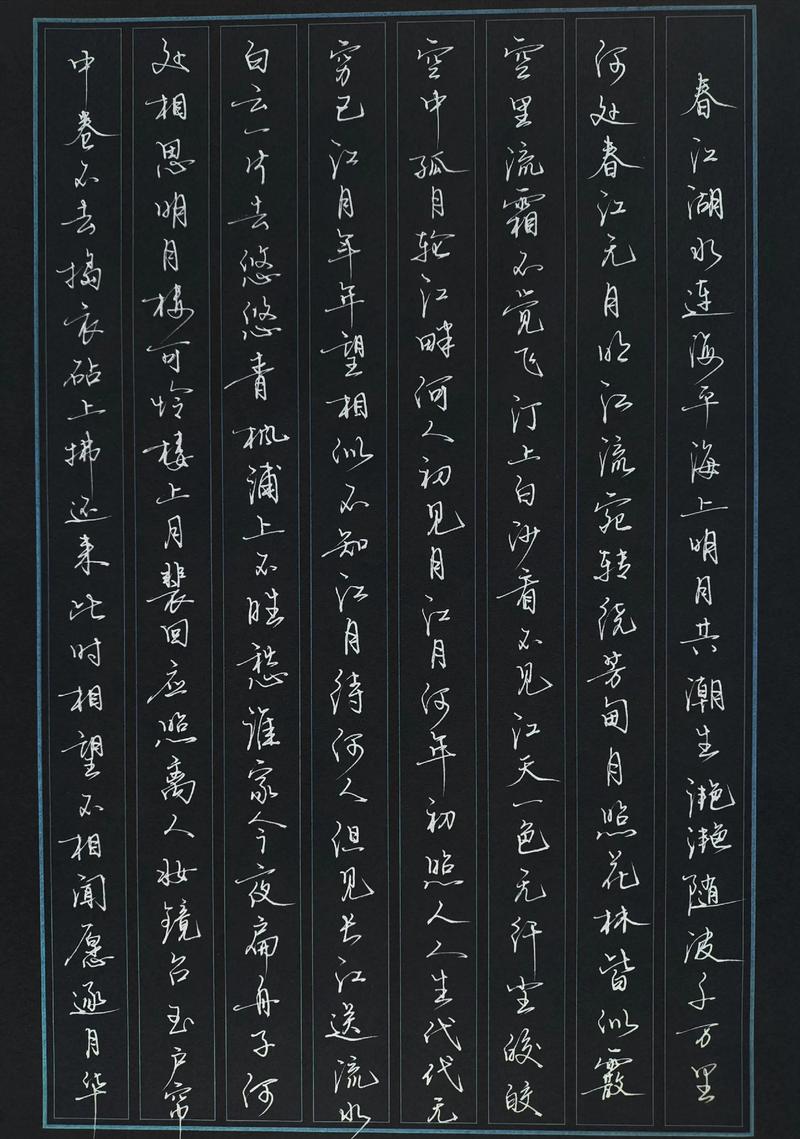 春江湖水连海平海上明月共潮生滟滟随波千万里
何处春江无月明江流宛转绕芳甸月照花林皆似霰
空里流霜不觉飞汀上白沙看不见江天一色无纤尘皎皎
空中孤月轮江畔何人初见月江月何年初照人人生代代无
穷已江月年年望相似不知江月待何人但见长江送流水
白云一片去悠悠青枫浦上不胜愁谁家今夜扁舟子何
处相思明月楼可怜楼上月裴回应照离人妆镜台玉户帘
中卷不去捣衣砧上拂还来此时相望不相闻愿逐月华